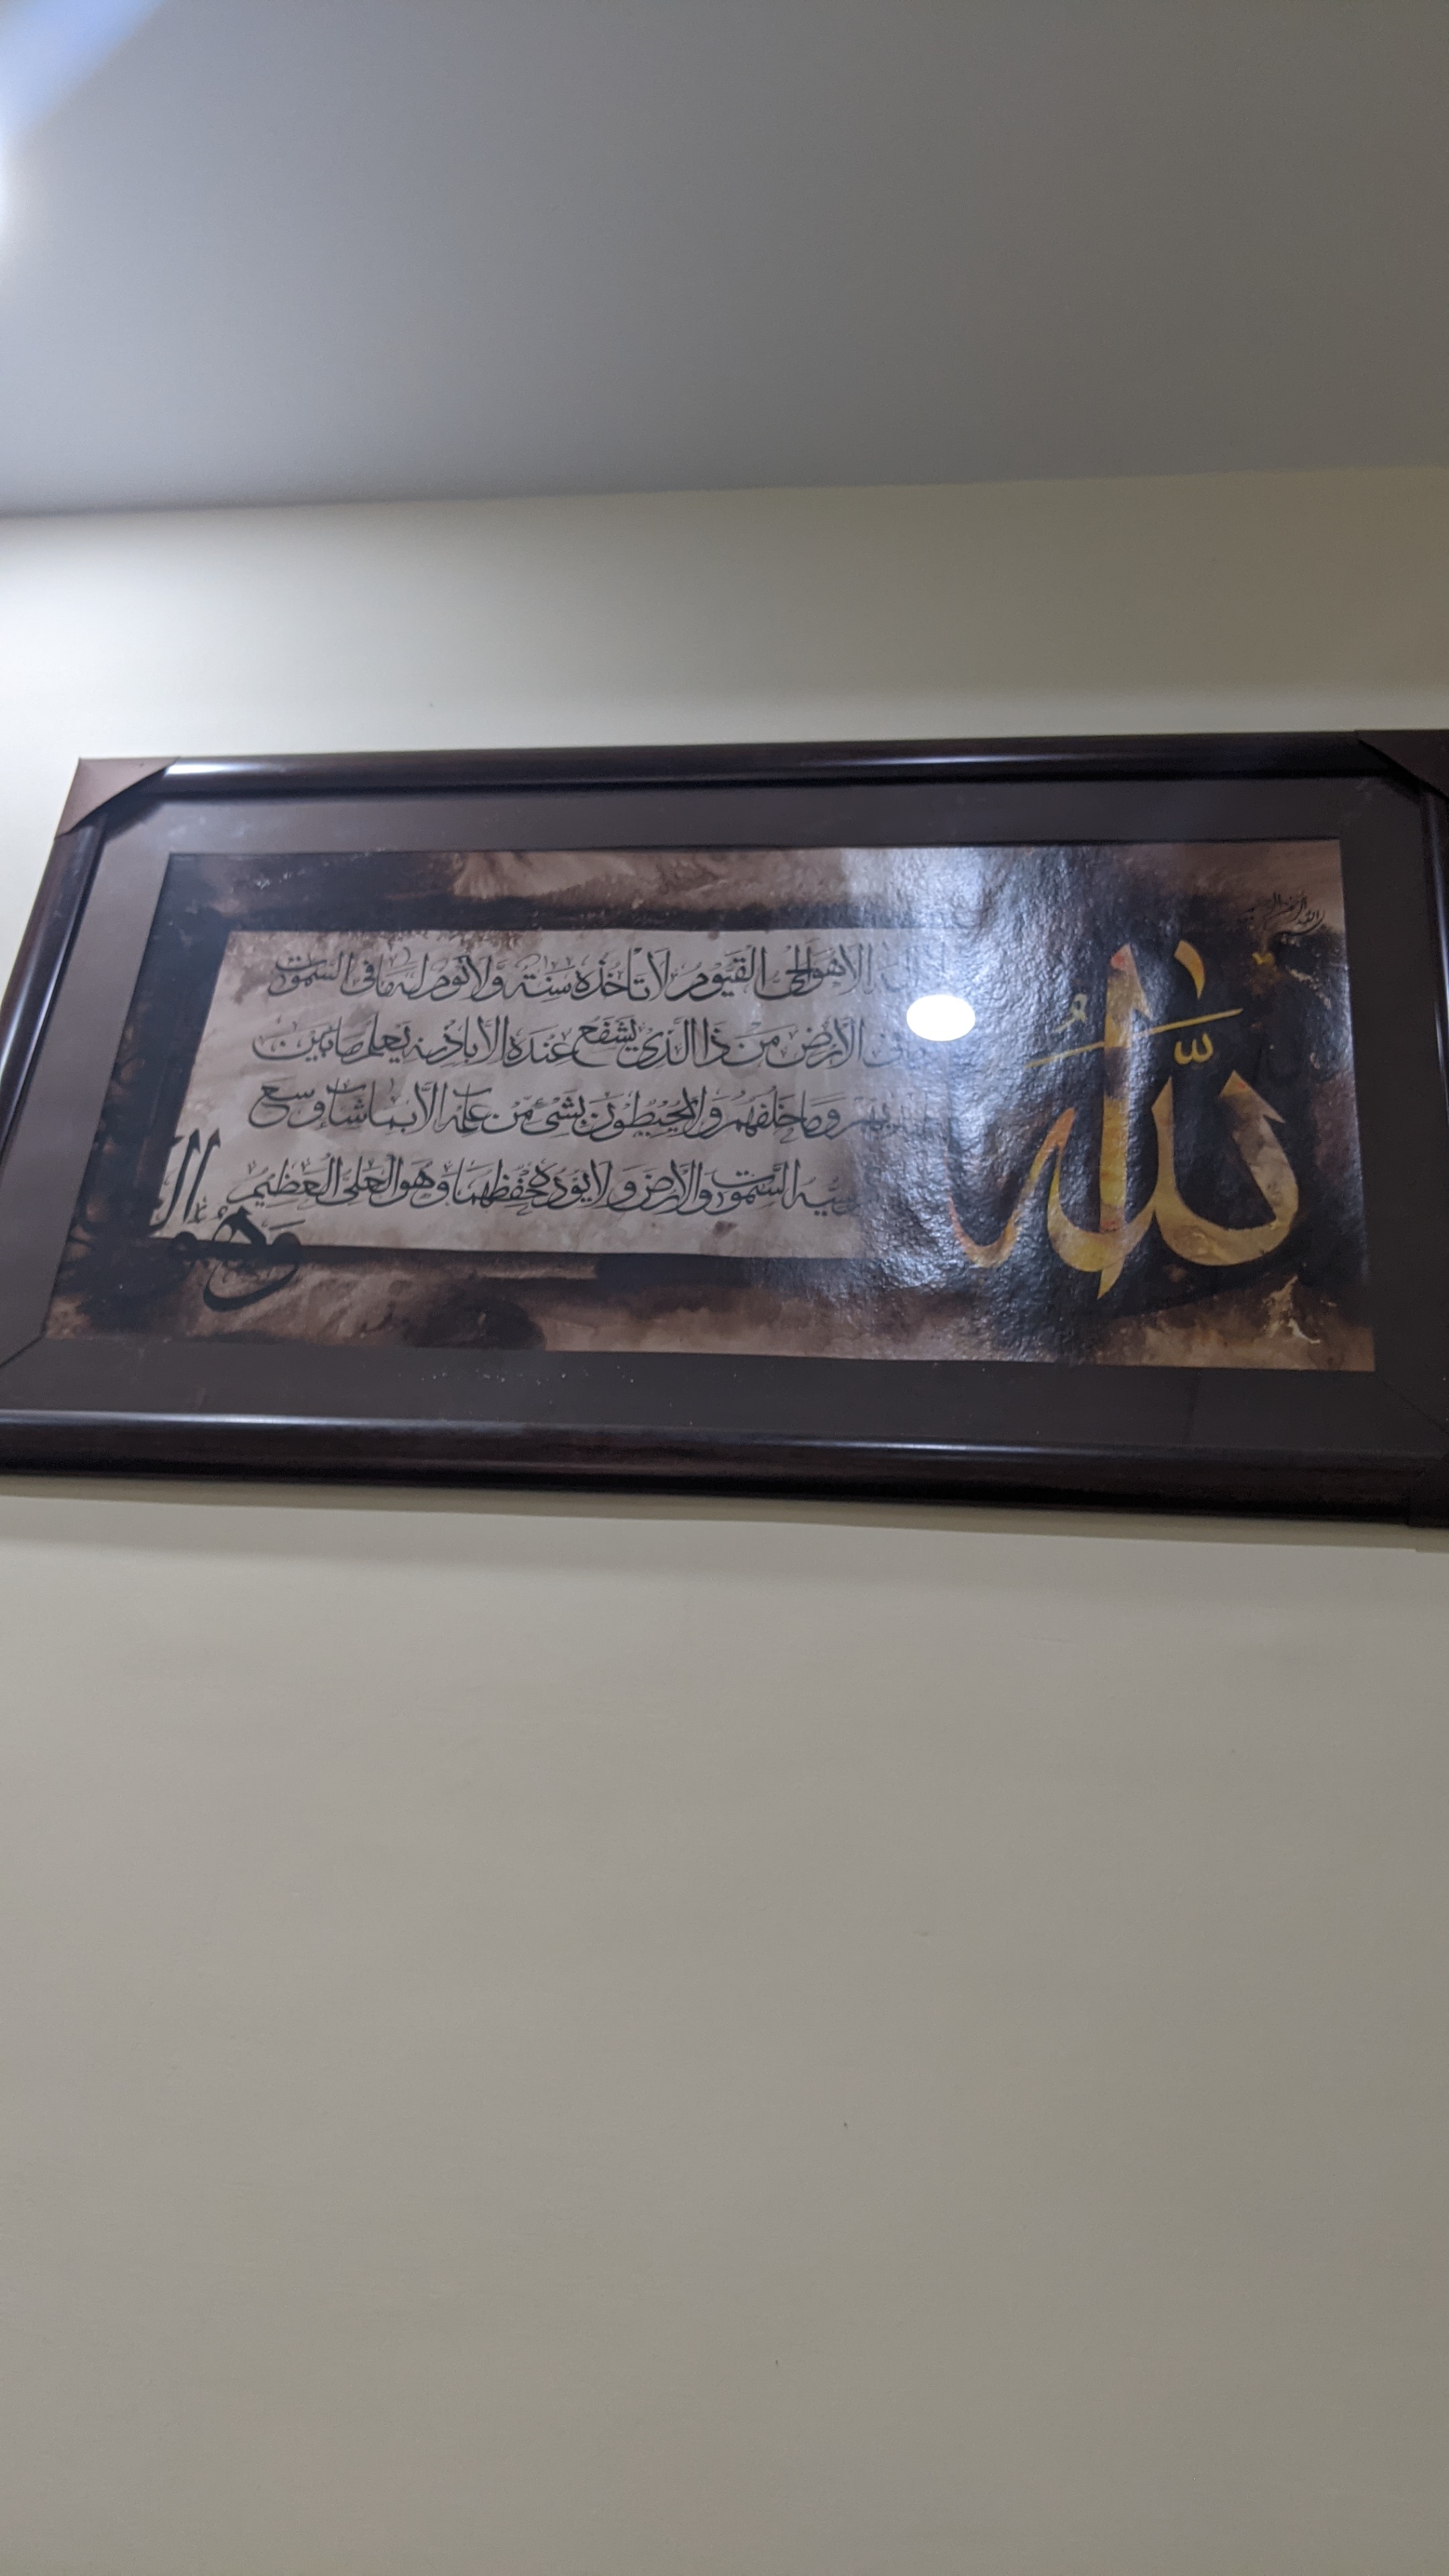 الله
إلا هو الحي القيوم لا تأخذه سنة ولا نوم له ما في السموت
في الأرض من ذا الذي يشفع عنده إلا بإذنه يعلم ما بين
وما خلفهم ولا يحيطون بشئ من علمه إلا بما شاء وسع
السموت والأرض ولا يوده حفظهما وهو العلي العظيم